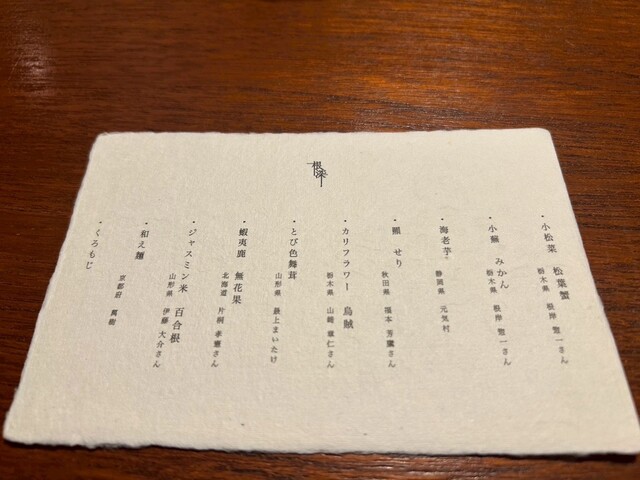 根
・小松菜 松葉蟹
栃木県 根岸 さん
・小蕪 みかん
栃木県 根岸 さん
・海老芋
静岡県 元気村
・熊 せり
秋田県 福本 さん
・カリフラワー 烏賊
栃木県 山﨑 さん
・とび色舞茸
山形県 最上まいたけ
・蝦夷鹿 無花果
北海道 片桐 さん
・ジャスミン米 百合根
山形県 伊藤 大介さん
・和え麺
京都府
・くろもじ